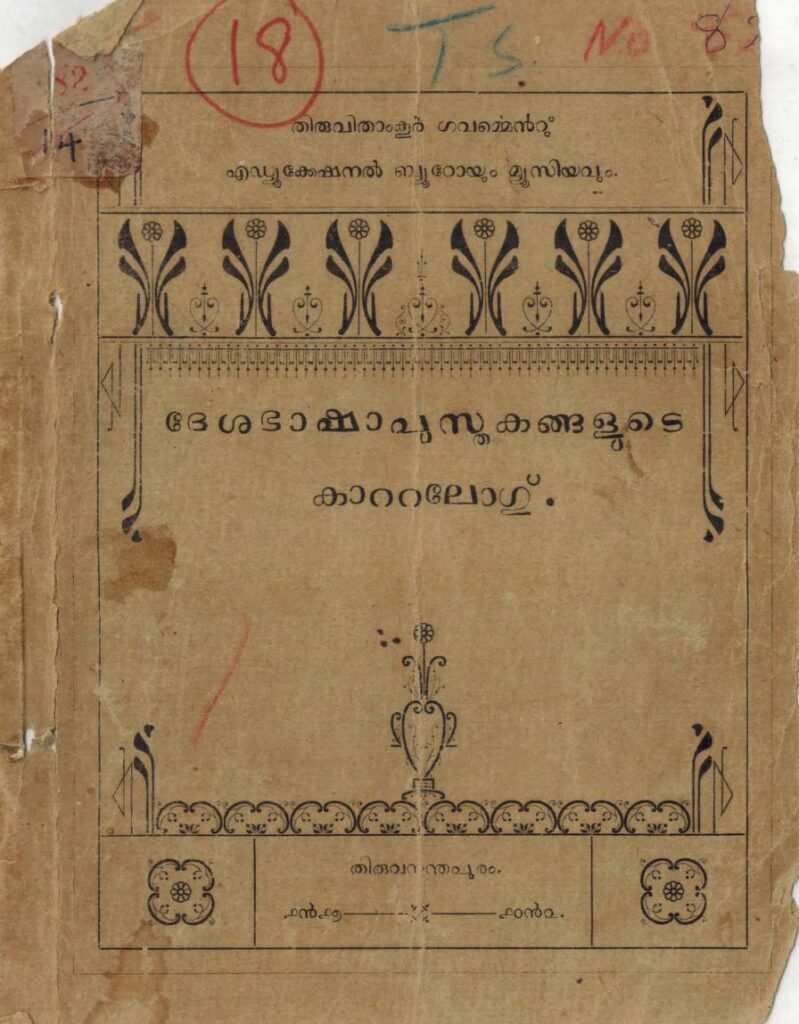 18 T. S. No
14
തിരുവിതാംകൂർ ഗവൎമ്മെൻറു്
എഡ്യൂക്കേഷനൽ ബ്യൂറോയും മ്യൂസിയവും.
ദേശഭാഷാപുസ്തകങ്ങളുടെ
കാററലോഗ്.
തിരുവനന്തപുരം.
൧൯൧൭ ൧൦൯൨.